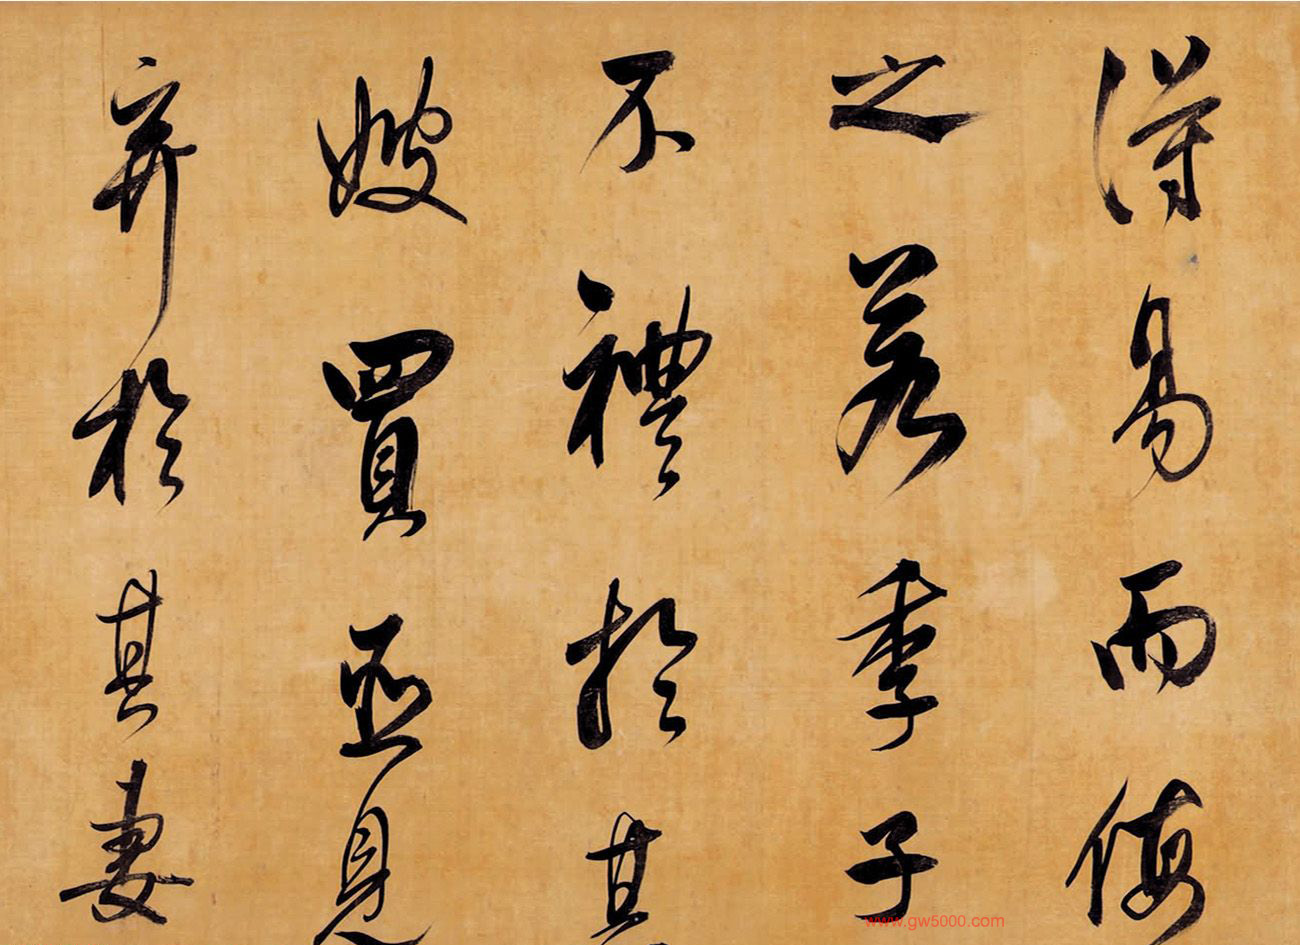 得易而侮
之若季子
不禮於其
嫂買臣見
棄於其妻
www.gw5000.com